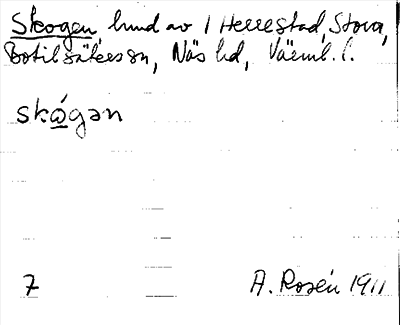 Skogen, hund av 1 Herrestad, Stora,
Botilsäters sn, Näs hd, Värml. l.
skógən
7 A. Rosén 1911